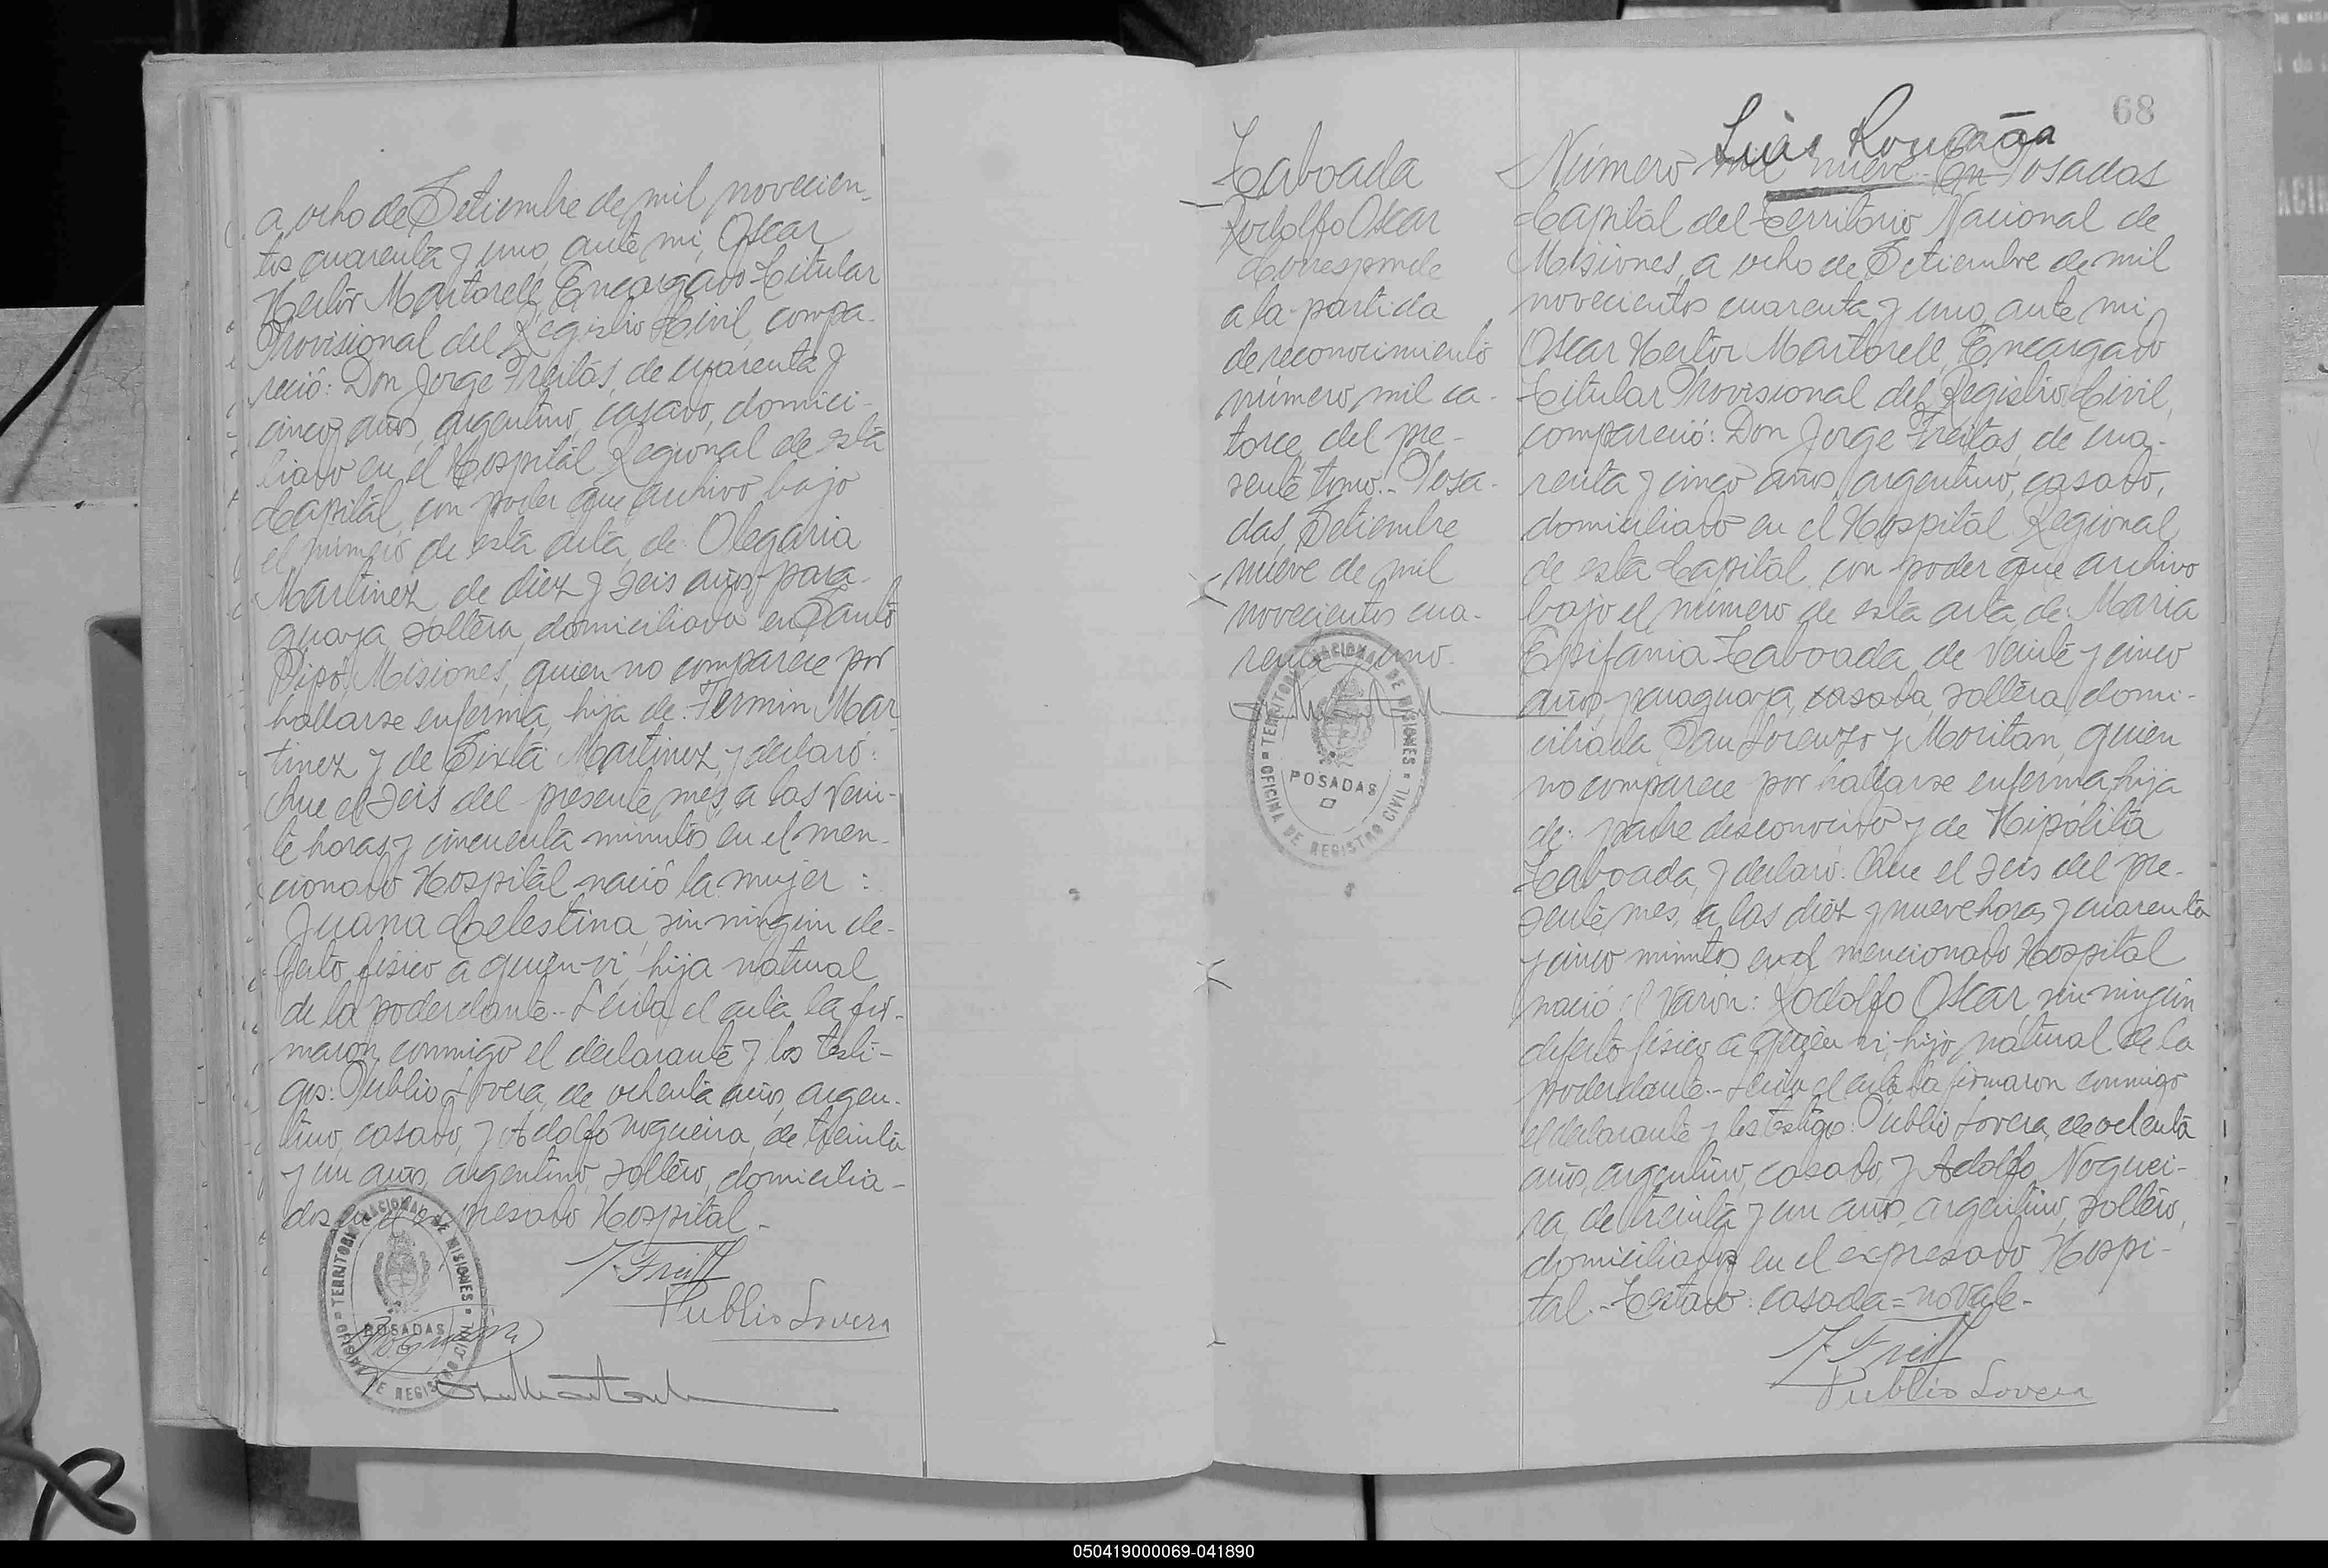 a ocho de Setiembre de mil novecien-
tos cuarenta y uno, ante mi, Oscar
Hector Martorell, Encargado Titular
Provisional del Registro Civil, compa-
reció: Don Jorge Freitas, de cuarenta y
cinco años, argentino, casado, domici-
liado en el Hospital Regional de esta
Capital, con poder que archivo bajo
el número de esta acta, de: Olegaria
Martinez, de diez y seis años, para-
guaya, soltera, domiciliada en Santo
Pipó, Misiones, quien no comparece por
hallarse enferma, hija de: Fermin Mar-
tinez y de Sixta Martinez, y declaró:
Que el seis del presente mes, a las vein-
te horas y cincuenta minutos en el men-
cionado Hospital nació la mujer:
Juana Celestina, sin ningún de-
fecto físico a quien vi, hija natural
de la poderdante.- Leida el acta la fir-
maron conmigo el declarante y los testi-
gos: Publio Lovera, de ochenta años, argen-
tino, casado, y Adolfo Nogueira, de treinta
y un años, argentino, soltero, domicilia-
dos en el expresado Hospital.-
J. Freitas
Publio Lovera
TERRITORIO NACIONAL DE MISIONES
POSADAS
OFICINA DE REGISTRO CIVIL
68
Luis Román
Taboada
Rodolfo Oscar
Corresponde
a la partida
de reconocimiento
número mil ca-
torce del pre-
sente tomo.- Posa-
das, Setiembre
nueve de mil
novecientos cua-
renta y uno.
TERRITORIO NACIONAL DE MISIONES
POSADAS
OFICINA DE REGISTRO CIVIL
Número mil nueve.- En Posadas
Capital del Territorio Nacional de
Misiones, a ocho de Setiembre de mil
novecientos cuarenta y uno, ante mi,
Oscar Hector Martorell, Encargado
Titular Provisional del Registro Civil,
compareció: Don Jorge Freitas, de cua-
renta y cinco años, argentino, casado,
domiciliado en el Hospital Regional
de esta Capital, con poder que archivo
bajo el número de esta acta, de: Maria
Epifania Taboada, de veinte y cinco
años, paraguaya, casada, soltera, domi-
ciliada San Lorenzo y Moritan, quien
no comparece por hallarse enferma, hija
de: padre desconocido y de Hipólita
Taboada, y declaró: Que el seis del pre-
sente mes, a las diez y nueve horas y cuarenta
y cinco minutos en el mencionado Hospital
nació el varon: Rodolfo Oscar, sin ningún
defecto físico a quien vi, hijo natural de la
poderdante.- Leida el acta la firmaron conmigo
el declarante y los testigos: Publio Lovera, de ochenta
años, argentino, casado, y Adolfo Noguei-
ra, de treinta y un años, argentino, soltero,
domiciliados en el expresado Hospi-
tal.- Testado: casada = no vale.-
J. Freitas
Publio Lovera
050419000069-041890